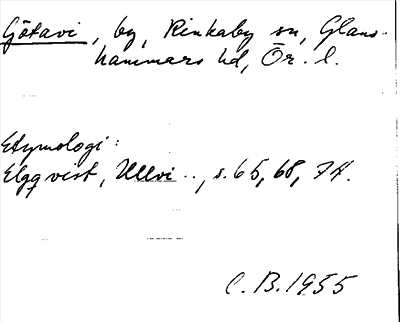 Götavi, by, Rinkaby sn, Glans-
hammars hd, Ör. l.
Etymologi:
Elgqvist, Ullvi .., s. 65, 68, 74.
C. B. 1955